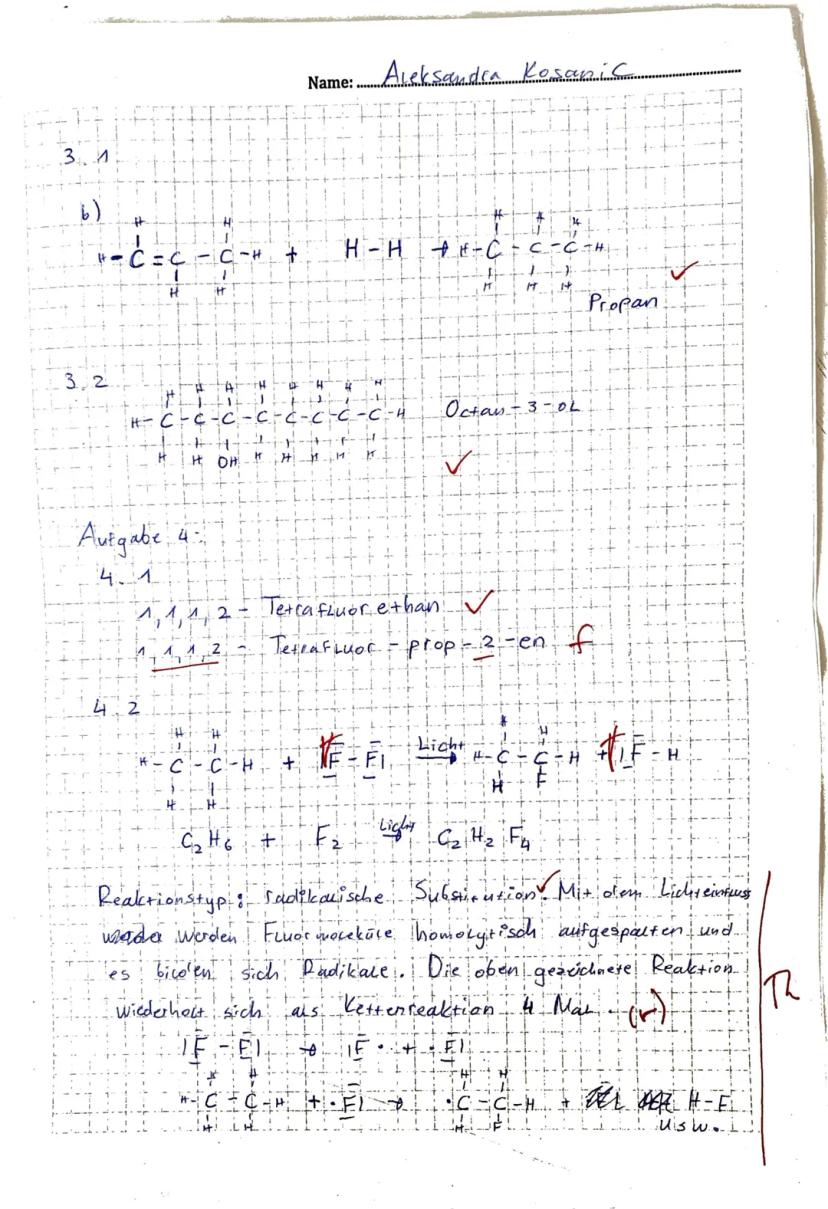 Name: Aleksandra Kosanic
3.1
b)
H H
H-C=C-C-H + H-H → H-C-C-C-H
H H
Propan ✓
3.2
H H H H H H H H
H-C-C-C-C-C-C-C-C-H Octan-3-ol
H H OH H H H H H
✓
Aufgabe 4:
4.1
1,1,1,2 - Tetrafluorethan ✓
1,1,1,2 - Tetrafluor-prop-2-en f
4.2
H H H H
H-C-C-H + |F-F| Licht → H-C-C-H + |F-H
H H H F
C₂H₆ + F₂ Licht → C₂H₂F₄
Reaktionstyp: radikalische Substitution ✓. Mit dem Lichteinfluss
werden Fluormoleküle homolytisch aufgespalten und
es bilden sich Radikale. Die oben gezeichnete Reaktion
wiederholt sich als Kettenreaktion 4 Mal. (r)
|F-F| → |F· + ·F|
H H H H
H-C-C-H + ·F| → ·C-C-H + H-F
H H H F usw.